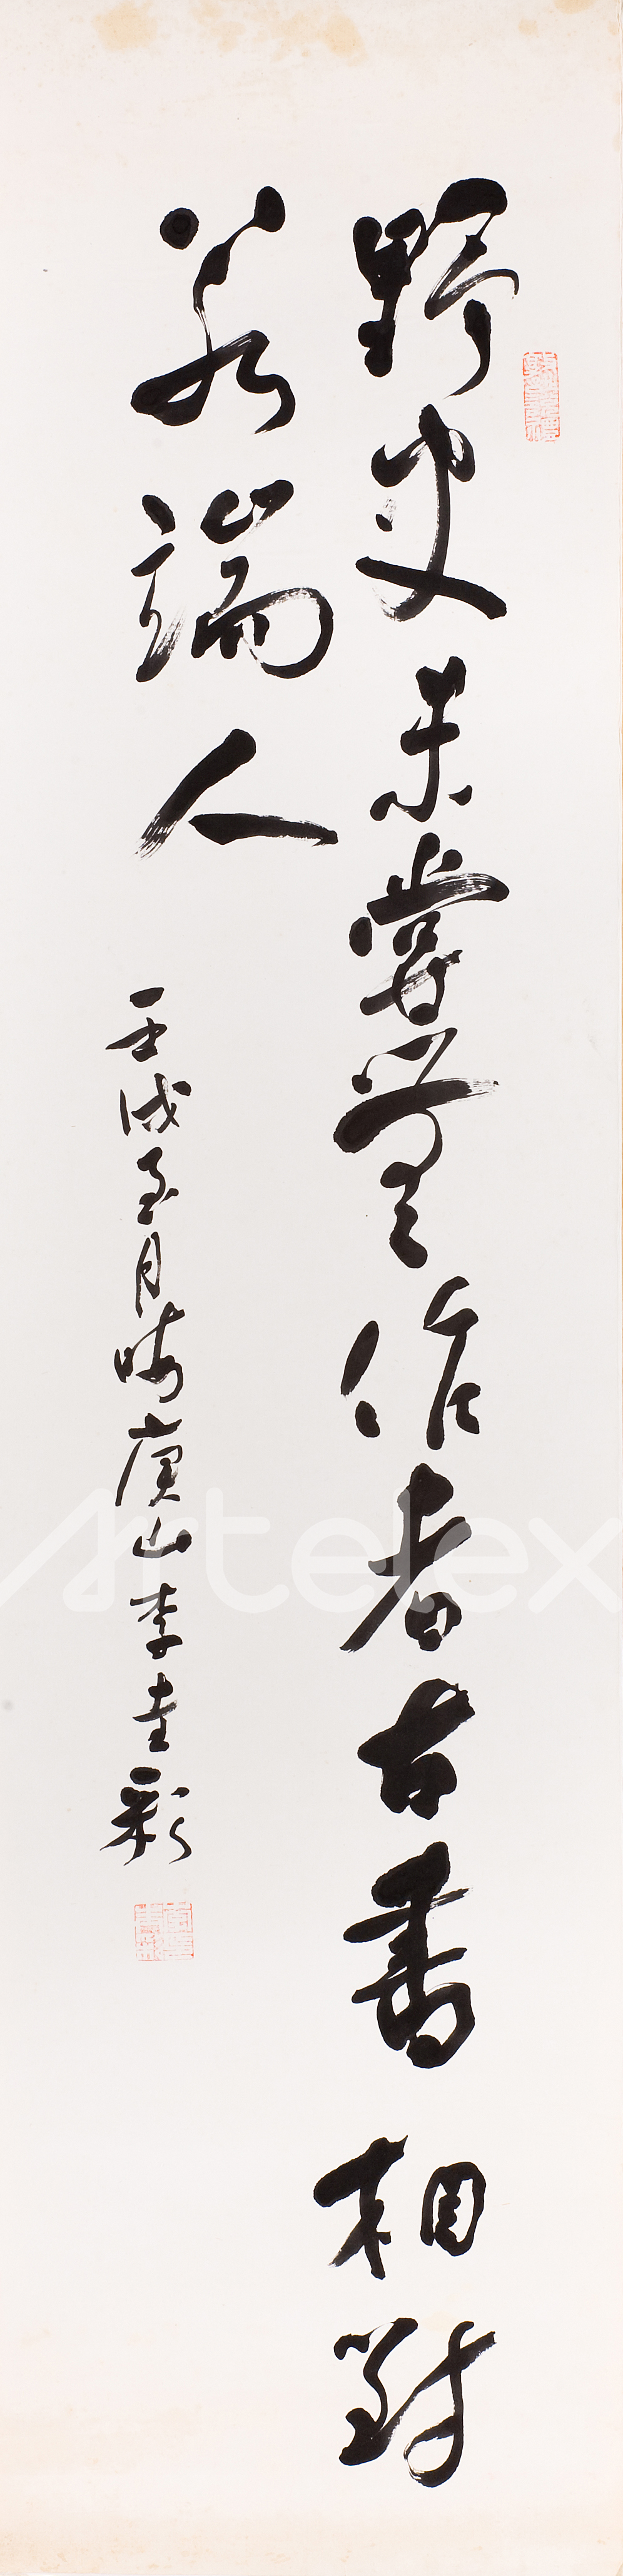 野史未嘗無作者古書相對
若端人
壬戌至月時廣山李圭彩
Artelex